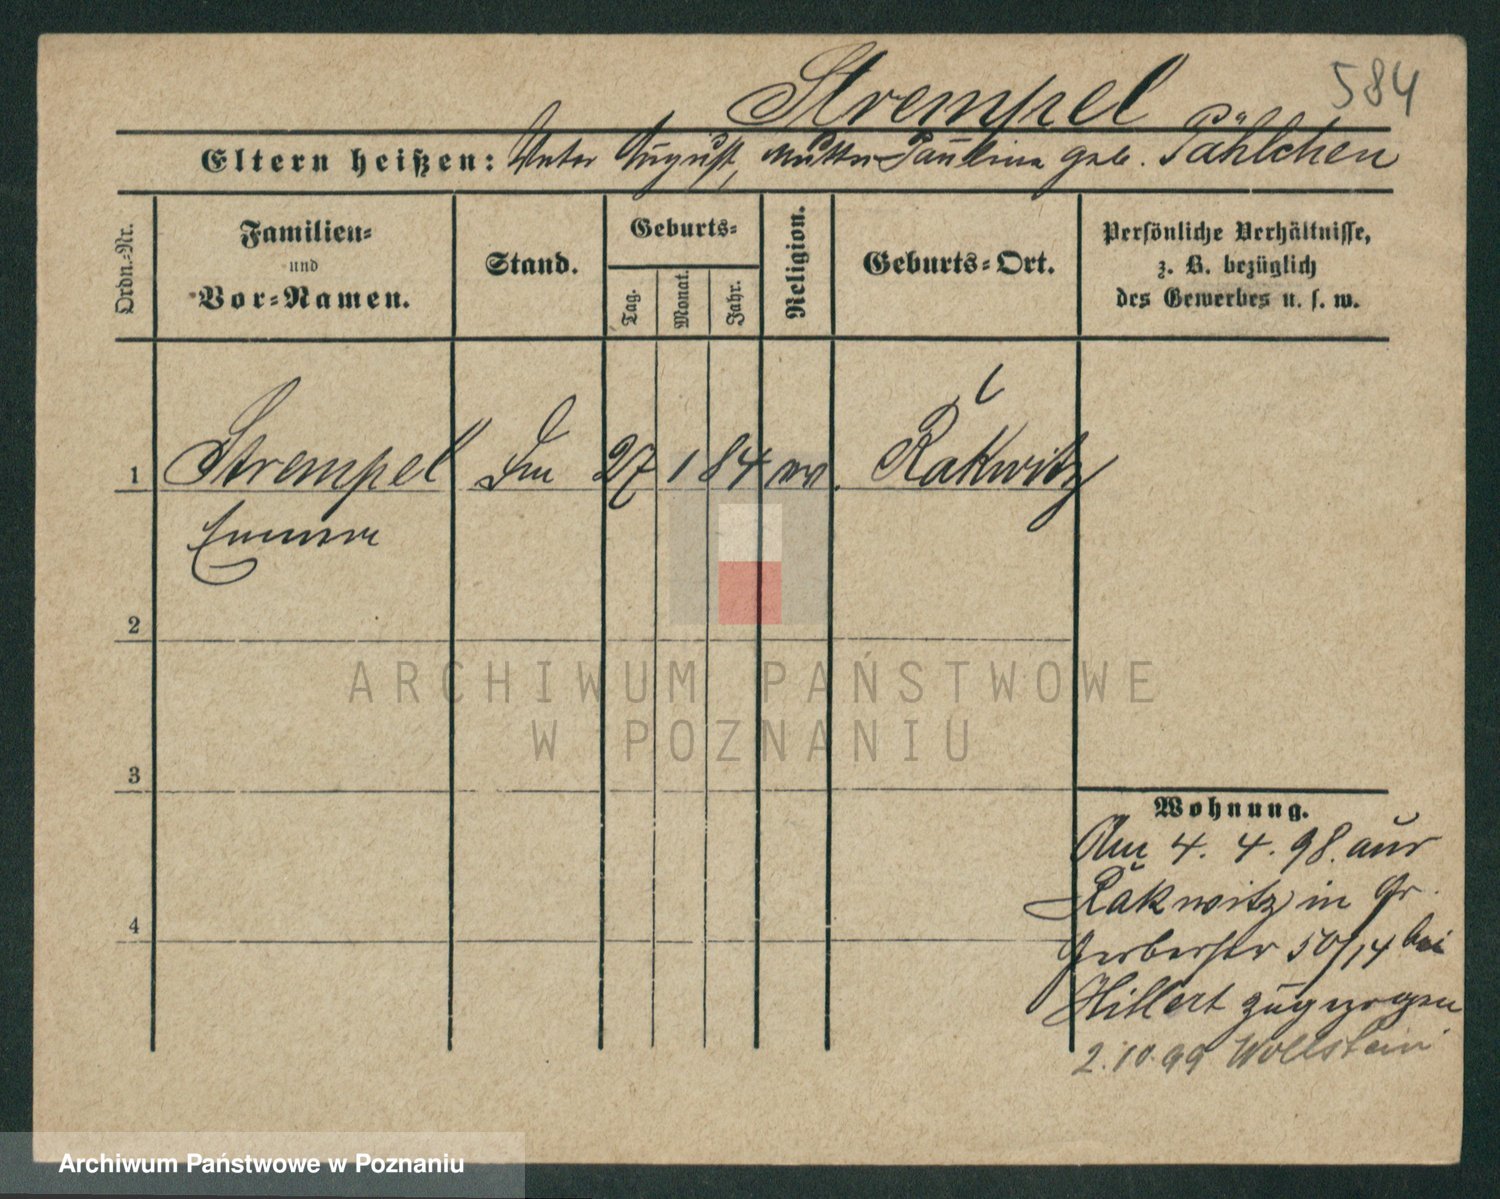 584
Strempel
Eltern heißen: Vater August, Mutter Paulina geb. Pählchen
Ordn.-Nr.
Familien-
und
Vor-Namen.
Stand.
Geburts-
Tag.
Monat.
Jahr.
Religion.
Geburts-Ort.
Persönliche Verhältnisse,
z. B. bezüglich
des Gewerbes u. s. w.
1 Strempel 27 1 84 ev. Rakwitz
Emma
2
3
4
Wohnung.
Am 4. 4. 98. aus
Rakwitz in Gr.
Gerberstr 50/14 bei
Hillert zugezogen
2.10.99 Wollstein
ARCHIWUM PAŃSTWOWE
W POZNANIU
Archiwum Państwowe w Poznaniu